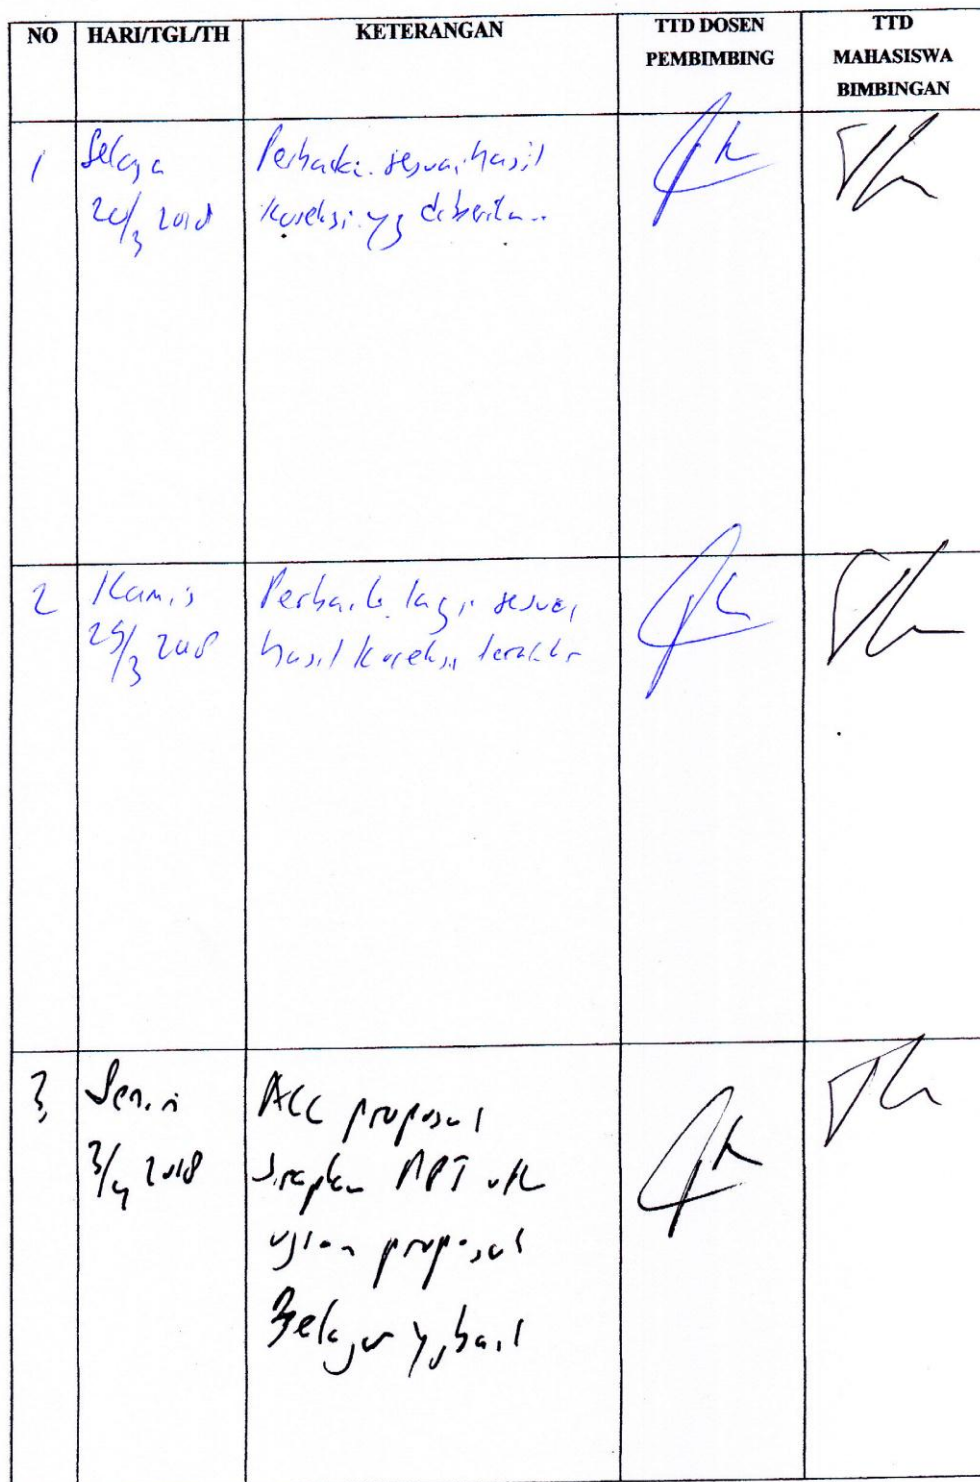 NO HARI/TGL/TH KETERANGAN TTD DOSEN PEMBIMBING TTD MAHASISWA BIMBINGAN
1 Selasa Perbaiki sesuai hasil
20/3 2018 koreksi yg diberikan
2 Kamis Perbaiki lagi sesuai
/3 2018 hasil koreksi terakhir
3 Senin ACC proposal
3/4 2018 siapkan PPT utk
ujian proposal
Belajar yg baik